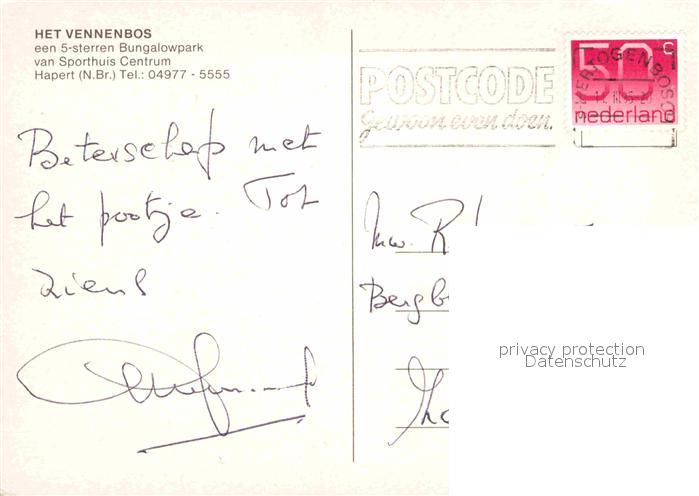 HET VENNENBOS
een 5-sterren Bungalowpark
van Sporthuis Centrum
Hapert (N.Br.) Tel.: 04977 - 5555
POSTCODE
gewoon even doen.
50 c
nederland
Beterschap met
het pootje. Tot
ziens
Mw. R
Bergb
privacy protection
Datenschutz